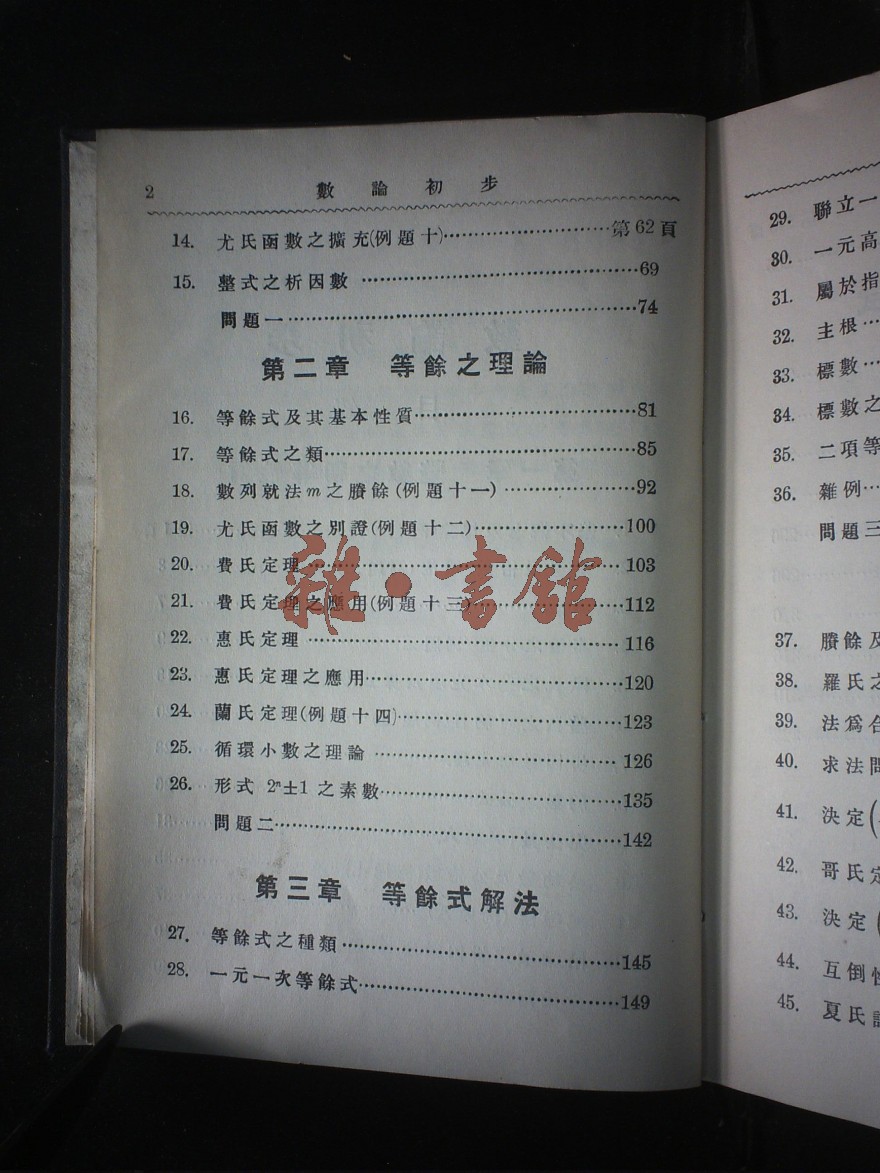 2 數論初步
14. 尤氏函數之擴充(例題十)⋯⋯第62頁
15. 整式之析因數⋯⋯69
問題一⋯⋯74
第二章 等餘之理論
16. 等餘式及其基本性質⋯⋯81
17. 等餘式之類⋯⋯85
18. 數列就法m之賸餘(例題十一)⋯⋯92
19. 尤氏函數之別證(例題十二)⋯⋯100
20. 費氏定理⋯⋯103
21. 費氏定理之應用(例題十三)⋯⋯112
22. 惠氏定理⋯⋯116
23. 惠氏定理之應用⋯⋯120
24. 蘭氏定理(例題十四)⋯⋯123
25. 循環小數之理論⋯⋯126
26. 形式 2ⁿ±1 之素數⋯⋯135
問題二⋯⋯142
第三章 等餘式解法
27. 等餘式之種類⋯⋯145
28. 一元一次等餘式⋯⋯149
雜·書館
29. 聯立一
30. 一元高
31. 屬於指
32. 主根⋯
33. 標數⋯
34. 標數之
35. 二項等
36. 雜例⋯
問題三
37. 賸餘及
38. 羅氏之
39. 法爲合
40. 求法問
41. 決定(
42. 哥氏定
43. 決定(
44. 互倒性
45. 夏氏記